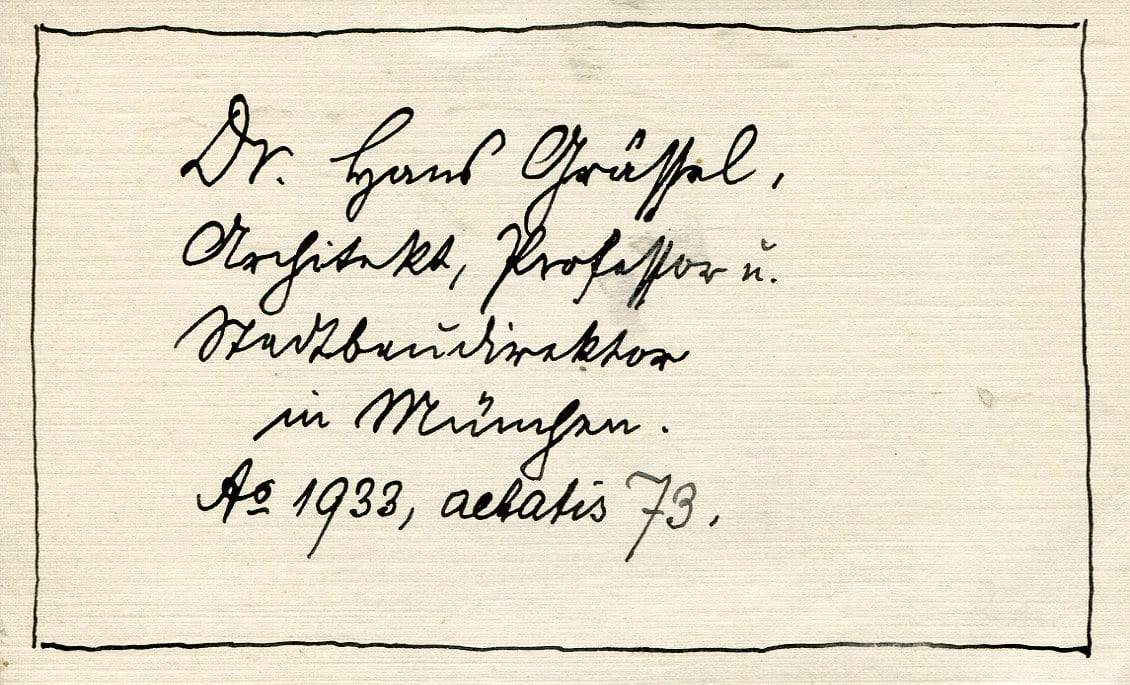 Dr. Hans Grässel,
Architekt, Professor u.
Stadtbaudirektor
in München.
Aº 1933, aetatis 73.